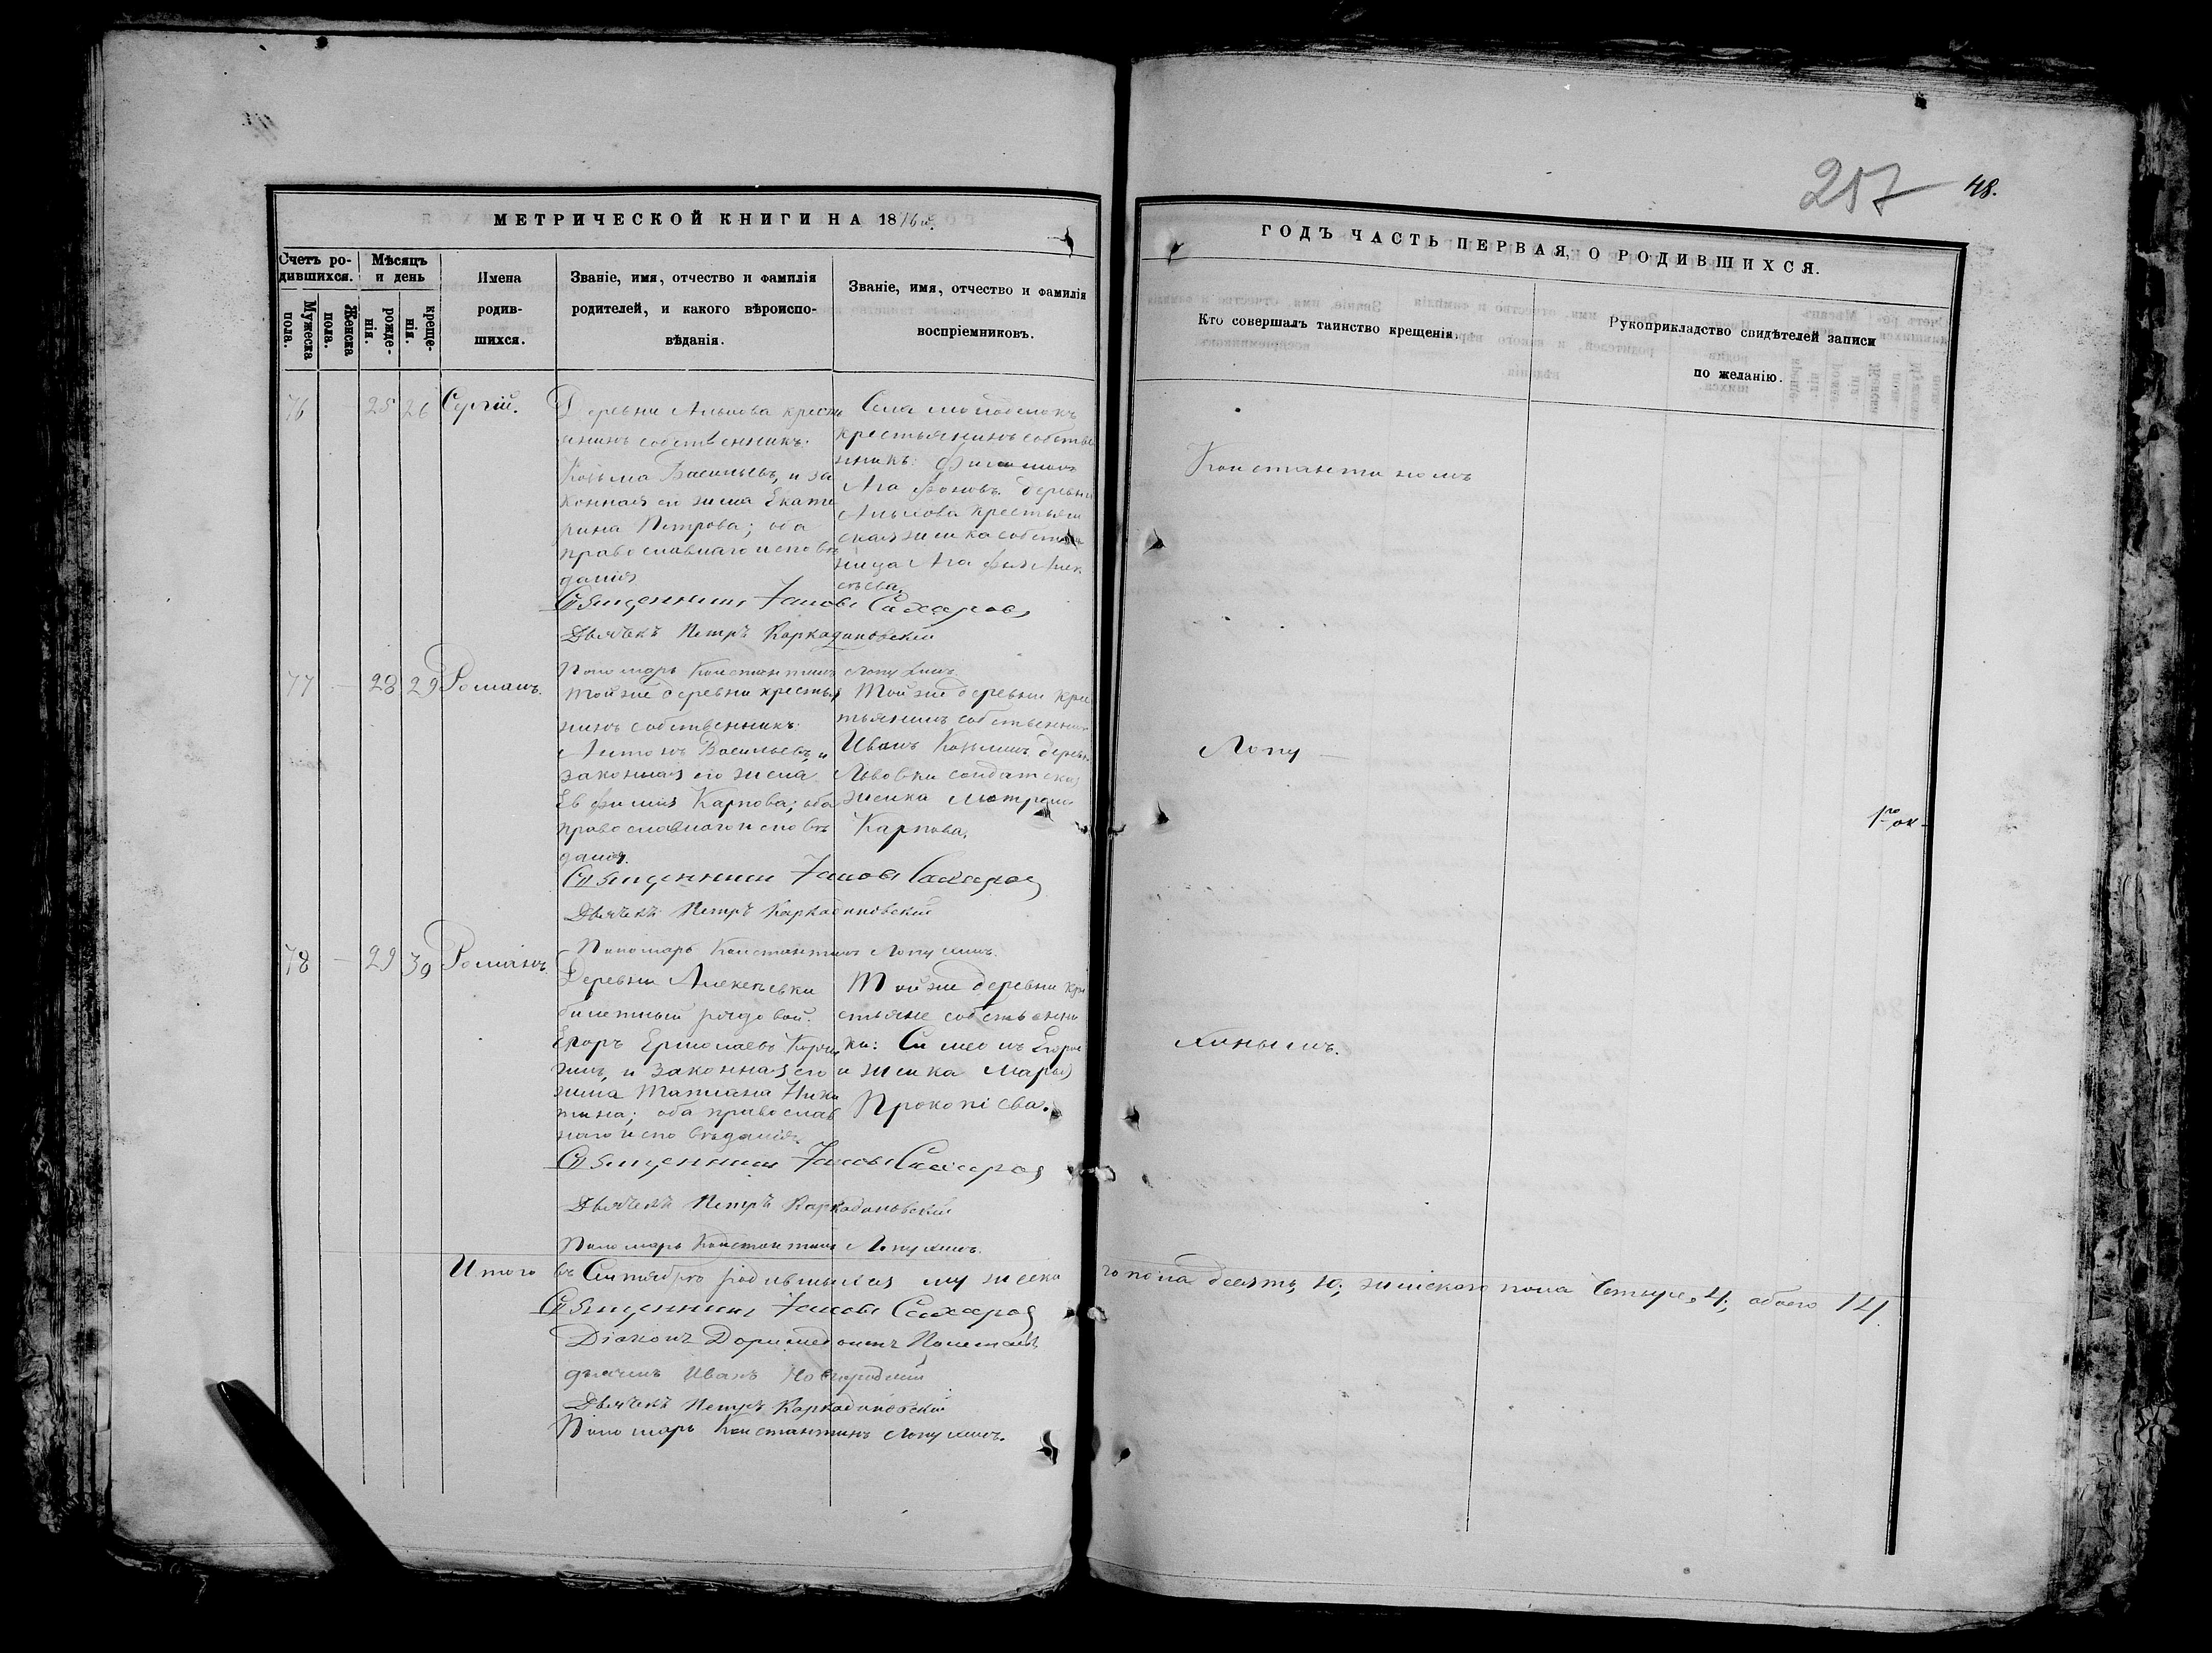 257 48.
МЕТРИЧЕСКОЙ КНИГИ НА 1876 й.
ГОДЪ ЧАСТЬ ПЕРВАЯ, О РОДИВШИХСЯ.
Счетъ ро-
дившихся.
Мужеска
пола.
Женска
пола.
Мѣсяцъ
и день
рожде-
нія.
креще-
нія.
Имена
родив-
шихся.
Званіе, имя, отчество и фамилія
родителей, и какого вѣроиспо-
вѣданія.
Званіе, имя, отчество и фамилія
воспріемниковъ.
Кто совершалъ таинство крещенія.
Рукоприкладство свидѣтелей записи
по желанію.
76 25 26 Сергій.
Деревни кресть
янинъ собственникъ:
Козьма Васильевъ, и за
конная его жена Екате
рина Петрова; оба
православнаго исповѣ
данія
Села
крестьянинъ собстве
нникъ:
Агафоновъ. деревни
крестьян
ская женка собствен
ница Агафья Алек
сѣева.
Константиномъ
Священникъ Іаковъ Сахаровъ
Дьячекъ Петръ Каркадиновскій
Пономарь Константинъ Лопухинъ
77 — 28 29 Романъ.
Той же деревни крестья
нинъ собственникъ:
Антонъ Васильевъ, и
законная его жена
Евфимія Карпова; оба
православнаго исповѣ
данія.
Той же деревни крес
тьянинъ собственник
Иванъ Козьминъ, деревн
Львовки солдатская
женка Матрона
Карпова.
Лопу —
1го ок
Священникъ Іаковъ Сахаровъ
Дьячекъ Петръ Каркадиновскій
Пономарь Константинъ Лопухинъ.
78 — 29 30 Романъ
Деревни Алексѣевки
билетный рядовой:
Егоръ Ермолаевъ
и законная его
жена Татіана Ники
тина; оба православ
наго исповѣданія.
Той же деревни кре
стьяне собственни
ки: Симеонъ Егоров
и женка Марья
Прокопіева.
хинымъ.
Священникъ Іаковъ Сахаровъ
Дьячекъ Петръ Каркадиновскій
Пономарь Константинъ Лопухинъ.
Итого въ Сентябрѣ родившихся мужеска го пола десять, 10; женскаго пола четыре, 4; обоего 14.
Священникъ Іаковъ Сахаровъ
Діаконъ Доримедонтъ
дьячекъ Иванъ
Дьячекъ Петръ Каркадиновскій
Пономарь Константинъ Лопухинъ.